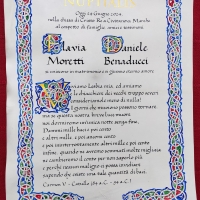 Oggi 29 Giugno 2024
nella chiesa di Cristo Re a Civitanova Marche
al cospetto di famiglie, amici e testimoni
Flavia Daniele
Moretti Benaducci
si uniscono in matrimonio e si giurano eterno amore
Viviamo Lesbia mia, ed amiamo
le chiacchiere dei vecchi troppo severi
consideriamole meno di nulla!
I giorni che muoiono possono tornare
ma se questa nostra breve luce muore
noi dormiremo un'unica notte senza fine.
Dammi mille baci e poi cento
e altri mille e poi ancora cento
e poi ininterrottamente altri mille e poi cento
infine quando ne avremo sommati molte migliaia
ne confonderemo il conto per non saperlo più
e perché nessun maligno ci possa invidiare
sapendo che esiste un dono così grande di baci.
Carmen V - Catullo 84 a.C. - 54 a.C.